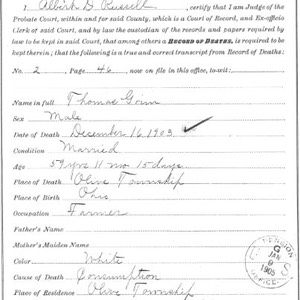 I, Albert B. Russell, certify that I am Judge of the
Probate Court, within and for said County, which is a Court of Record, and Ex-officio
Clerk of said Court, and by law the custodian of the records and papers required by
law to be kept in said Court, that among others a RECORD OF DEATHS, is required to be
kept therein; that the following is a true and correct transcript from Record of Deaths:
No. 2, Page 46, now on file in this office, to-wit:
Name in full Thomas Grim
Sex Male
Date of Death December 16, 1903
Condition Married
Age 59 yrs 11 mo 15 days
Place of Death Olive Township
Place of Birth Ohio
Occupation Farmer
Father's Name
Mother's Maiden Name
Color White
Cause of Death Consumption
Place of Residence Olive Township
PENSION OFFICE
G
JAN
9
1905